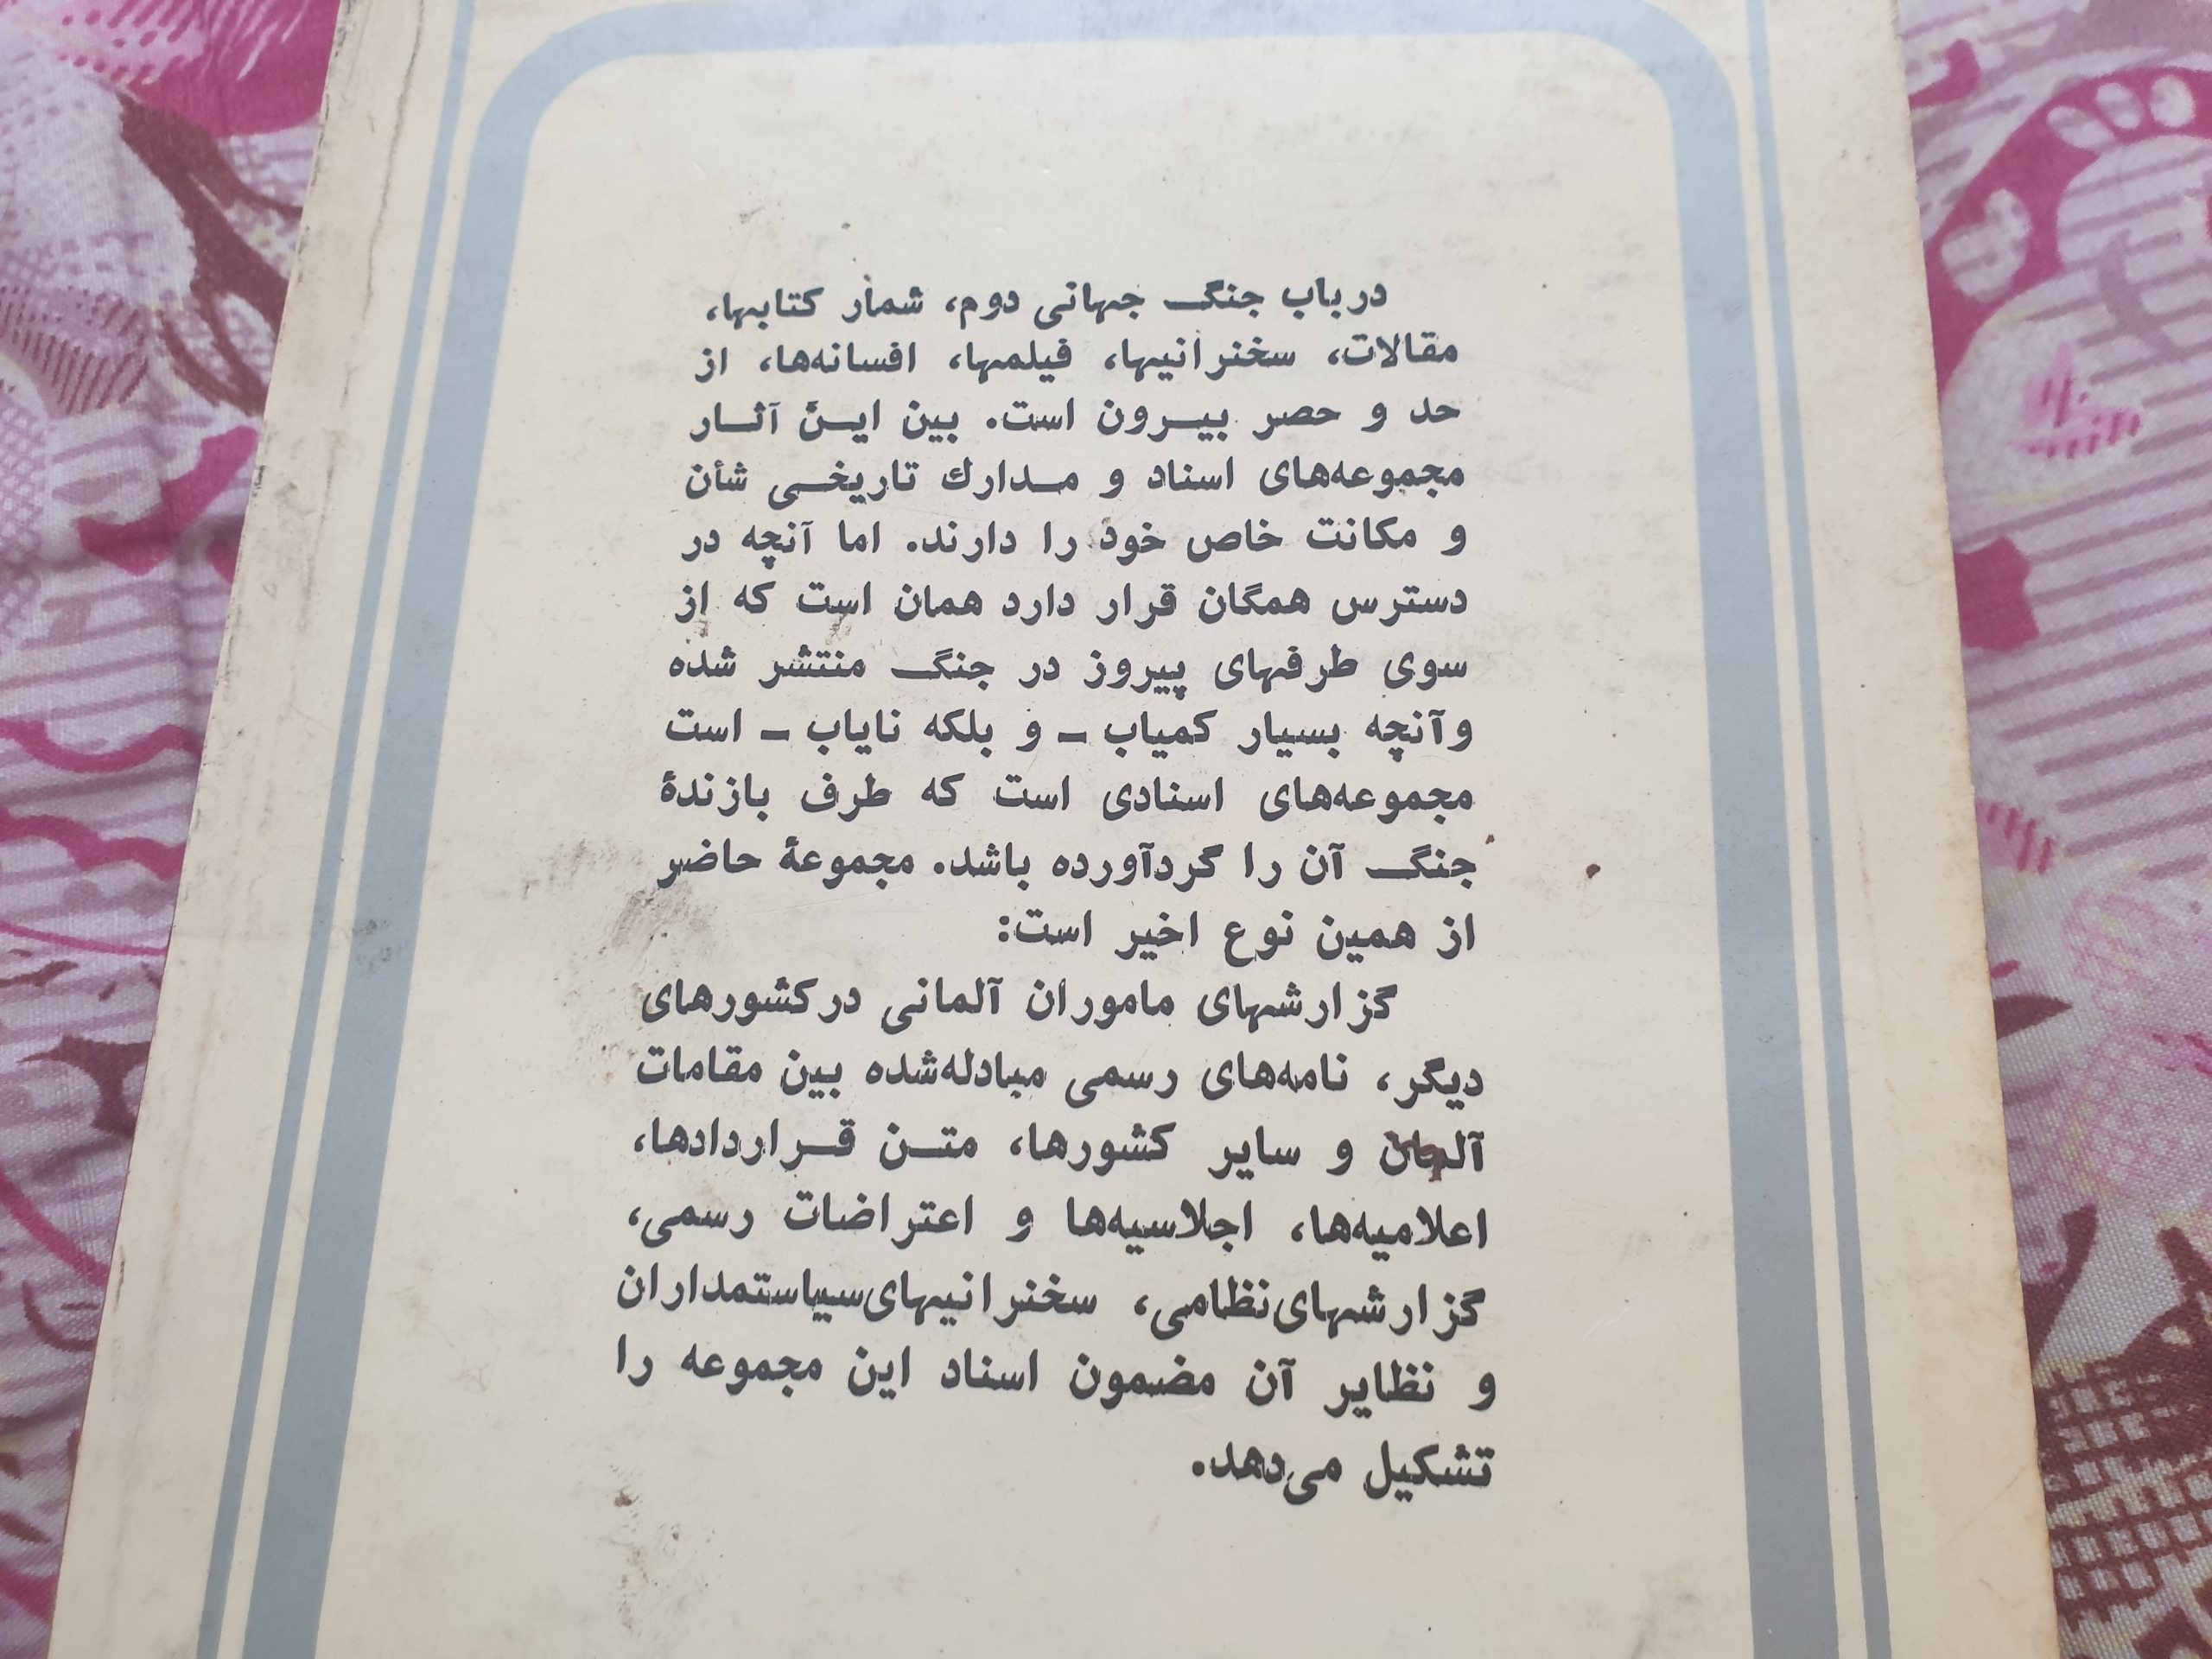 در باب جنگ جهانی دوم، شمار کتابها،
مقالات، سخنرانیها، فیلمها، افسانه‌ها، از
حد و حصر بیرون است. بین این آثار
مجموعه‌های اسناد و مدارك تاریخی شأن
و مکانت خاص خود را دارند. اما آنچه در
دسترس همگان قرار دارد همان است که از
سوی طرفهای پیروز در جنگ منتشر شده
و آنچه بسیار کمیاب – و بلکه نایاب – است
مجموعه‌های اسنادی است که طرف بازندهٔ
جنگ آن را گردآورده باشد. مجموعهٔ حاضر
از همین نوع اخیر است:
گزارشهای ماموران آلمانی در کشورهای
دیگر، نامه‌های رسمی مبادله‌شده بین مقامات
آلمان و سایر کشورها، متن قراردادها،
اعلامیه‌ها، اجلاسیه‌ها و اعتراضات رسمی،
گزارشهای نظامی، سخنرانیهای سیاستمداران
و نظایر آن مضمون اسناد این مجموعه را
تشکیل می‌دهد.